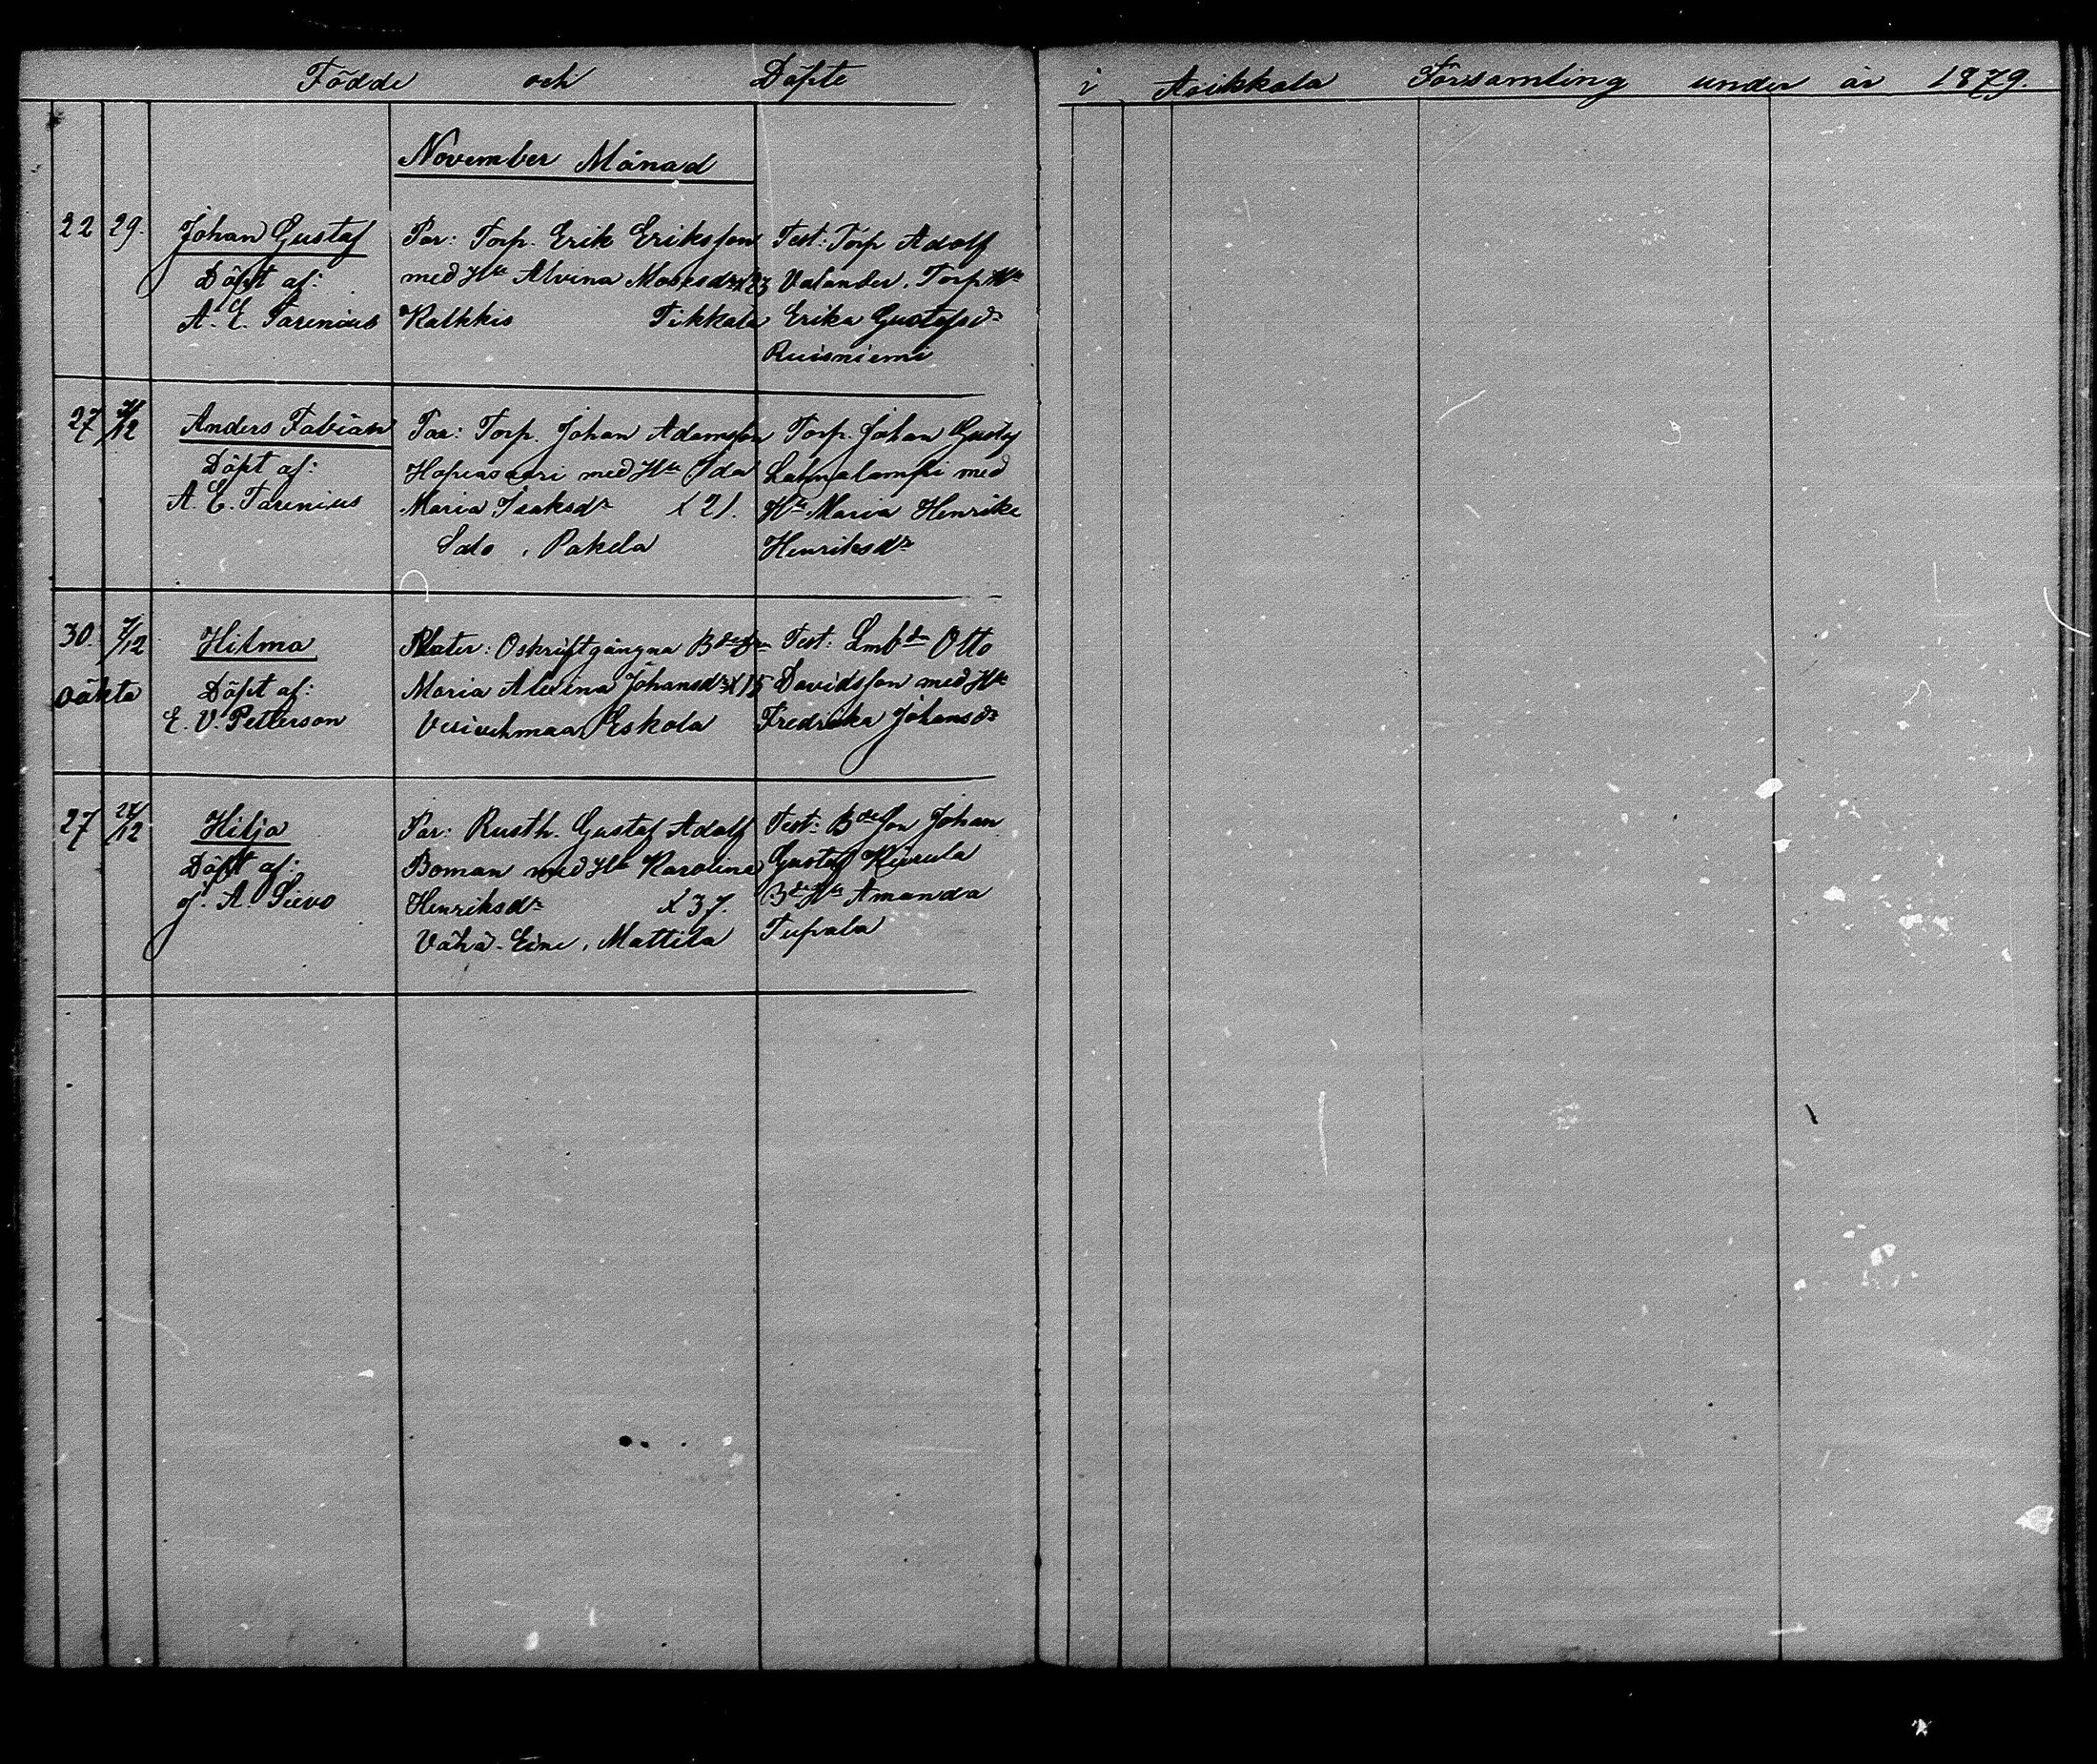 Födde och Döpte i Asikkala Församling under år 1879.
November Månad
22 29. Johan Gustaf
Döpt af:
A. E. Tarenius
Par: Torp. Erik Eriksson
med Hu Alvina Mosesdr x 23
Kalkkis Tikkala
Test: Torp Adolf
Valander, Torp Hu
Erika Gustafsdr
Ruisniemi
27 7/12 Anders Fabian
Döpt af:
A. E. Tarenius
Par: Torp. Johan Adamsson
Hopeasaari med Hu Ida
Maria Isaksdr x 21.
Salo, Pakela
Torp. Johan Gustaf
Lahnalampi med
Hu Maria Henrika
Henriksdr
30. 7/12 Hilma
oäkta Döpt af:
E. V. Petterson
Mater: Oskriftgångna Bdedr
Maria Alexina Johansdr x 15
Vesivehmaa, Eskola
Test: Lmbdn Otto
Davidsson med Hu
Fredrika Johansdr
27 27/12 Hilja
Döpt af:
J. A. Sievo
Par: Rusth. Gustaf Adolf
Boman med Hu Karolina
Henriksdr x 37.
Vähä-Eine, Mattila
Test: Bdeson Johan
Gustaf Kiurula
BdeHu Amanda
Tupala